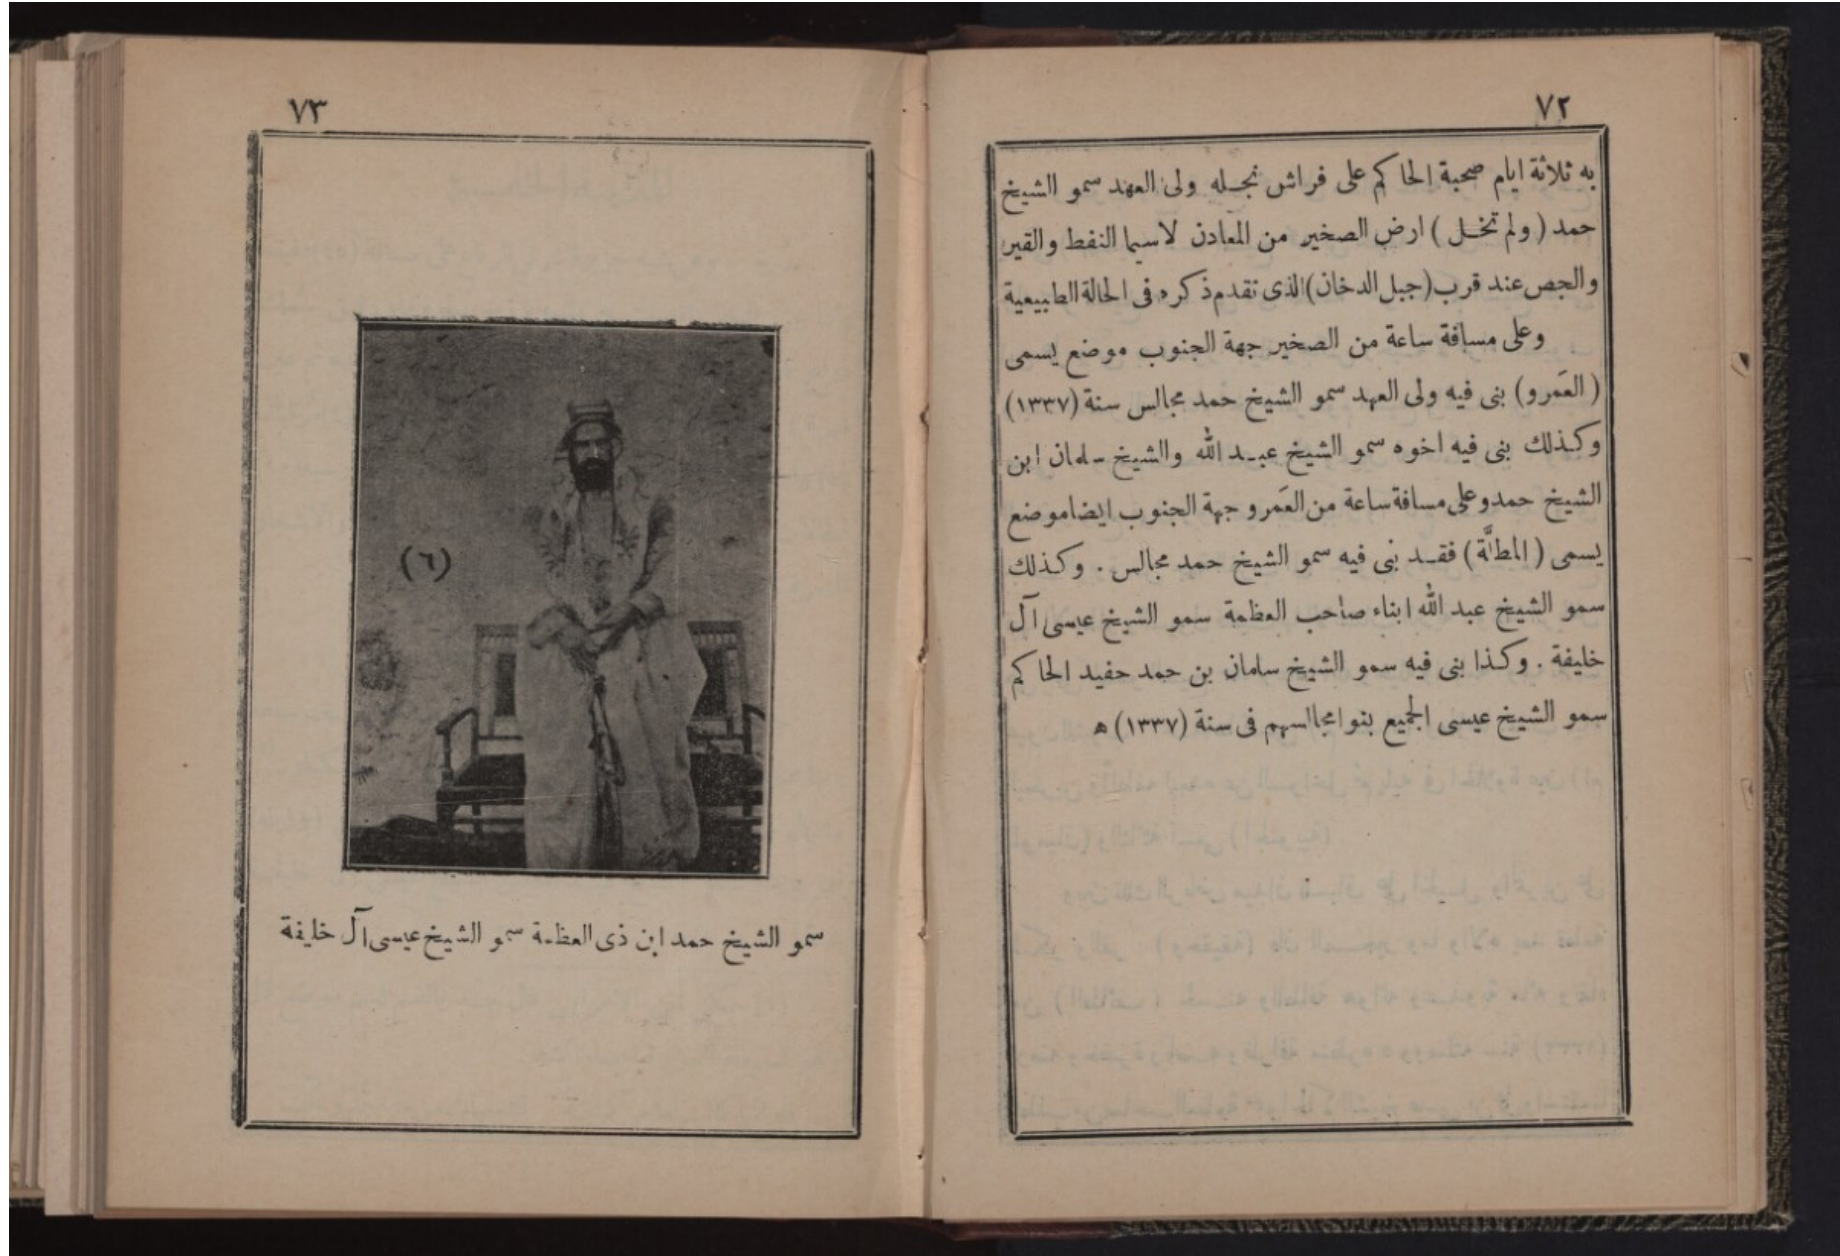 ٧٢
به ثلاثة ايام صحبة الحاكم على فراش نجله ولى العهد سمو الشيخ
حمد ( ولم تخل ) ارض الصخير من المعادن لاسيما النفط والقير
والجص عند قرب (جبل الدخان) الذى تقدم ذكره فى الحالة الطبيعية
وعلى مسافة ساعة من الصخير جهة الجنوب موضع يسمى
( العَمرو ) بنى فيه ولى العهد سمو الشيخ حمد مجالس سنة (١٣٣٧)
وكذلك بنى فيه اخوه سمو الشيخ عبد الله والشيخ سلمان ابن
الشيخ حمد وعلى مسافة ساعة من العَمرو جهة الجنوب ايضا موضع
يسمى ( المطلَّة ) فقد بنى فيه سمو الشيخ حمد مجالس . وكذلك
سمو الشيخ عبد الله ابناء صاحب العظمة سمو الشيخ عيسى آل
خليفة . وكذا بنى فيه سمو الشيخ سلمان بن حمد حفيد الحاكم
سمو الشيخ عيسى الجميع بنوا مجالسهم فى سنة (١٣٣٧) ه
٧٣
(٦)
سمو الشيخ حمد ابن ذى العظمة سمو الشيخ عيسى آل خليفة